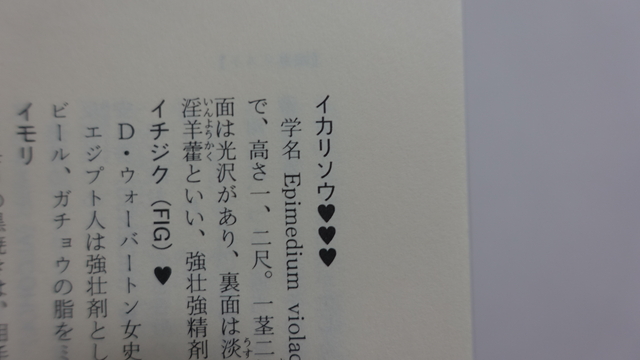 イカリソウ♥♥♥
学名 Epimedium violac
で、高さ一、二尺。一茎二
面は光沢があり、裏面は淡
淫羊藿といい、強壮強精剤
イチジク（FIG）♥
D・ウォーバートン女史
エジプト人は強壮剤とし
ビール、ガチョウの脂をミ
イモリ